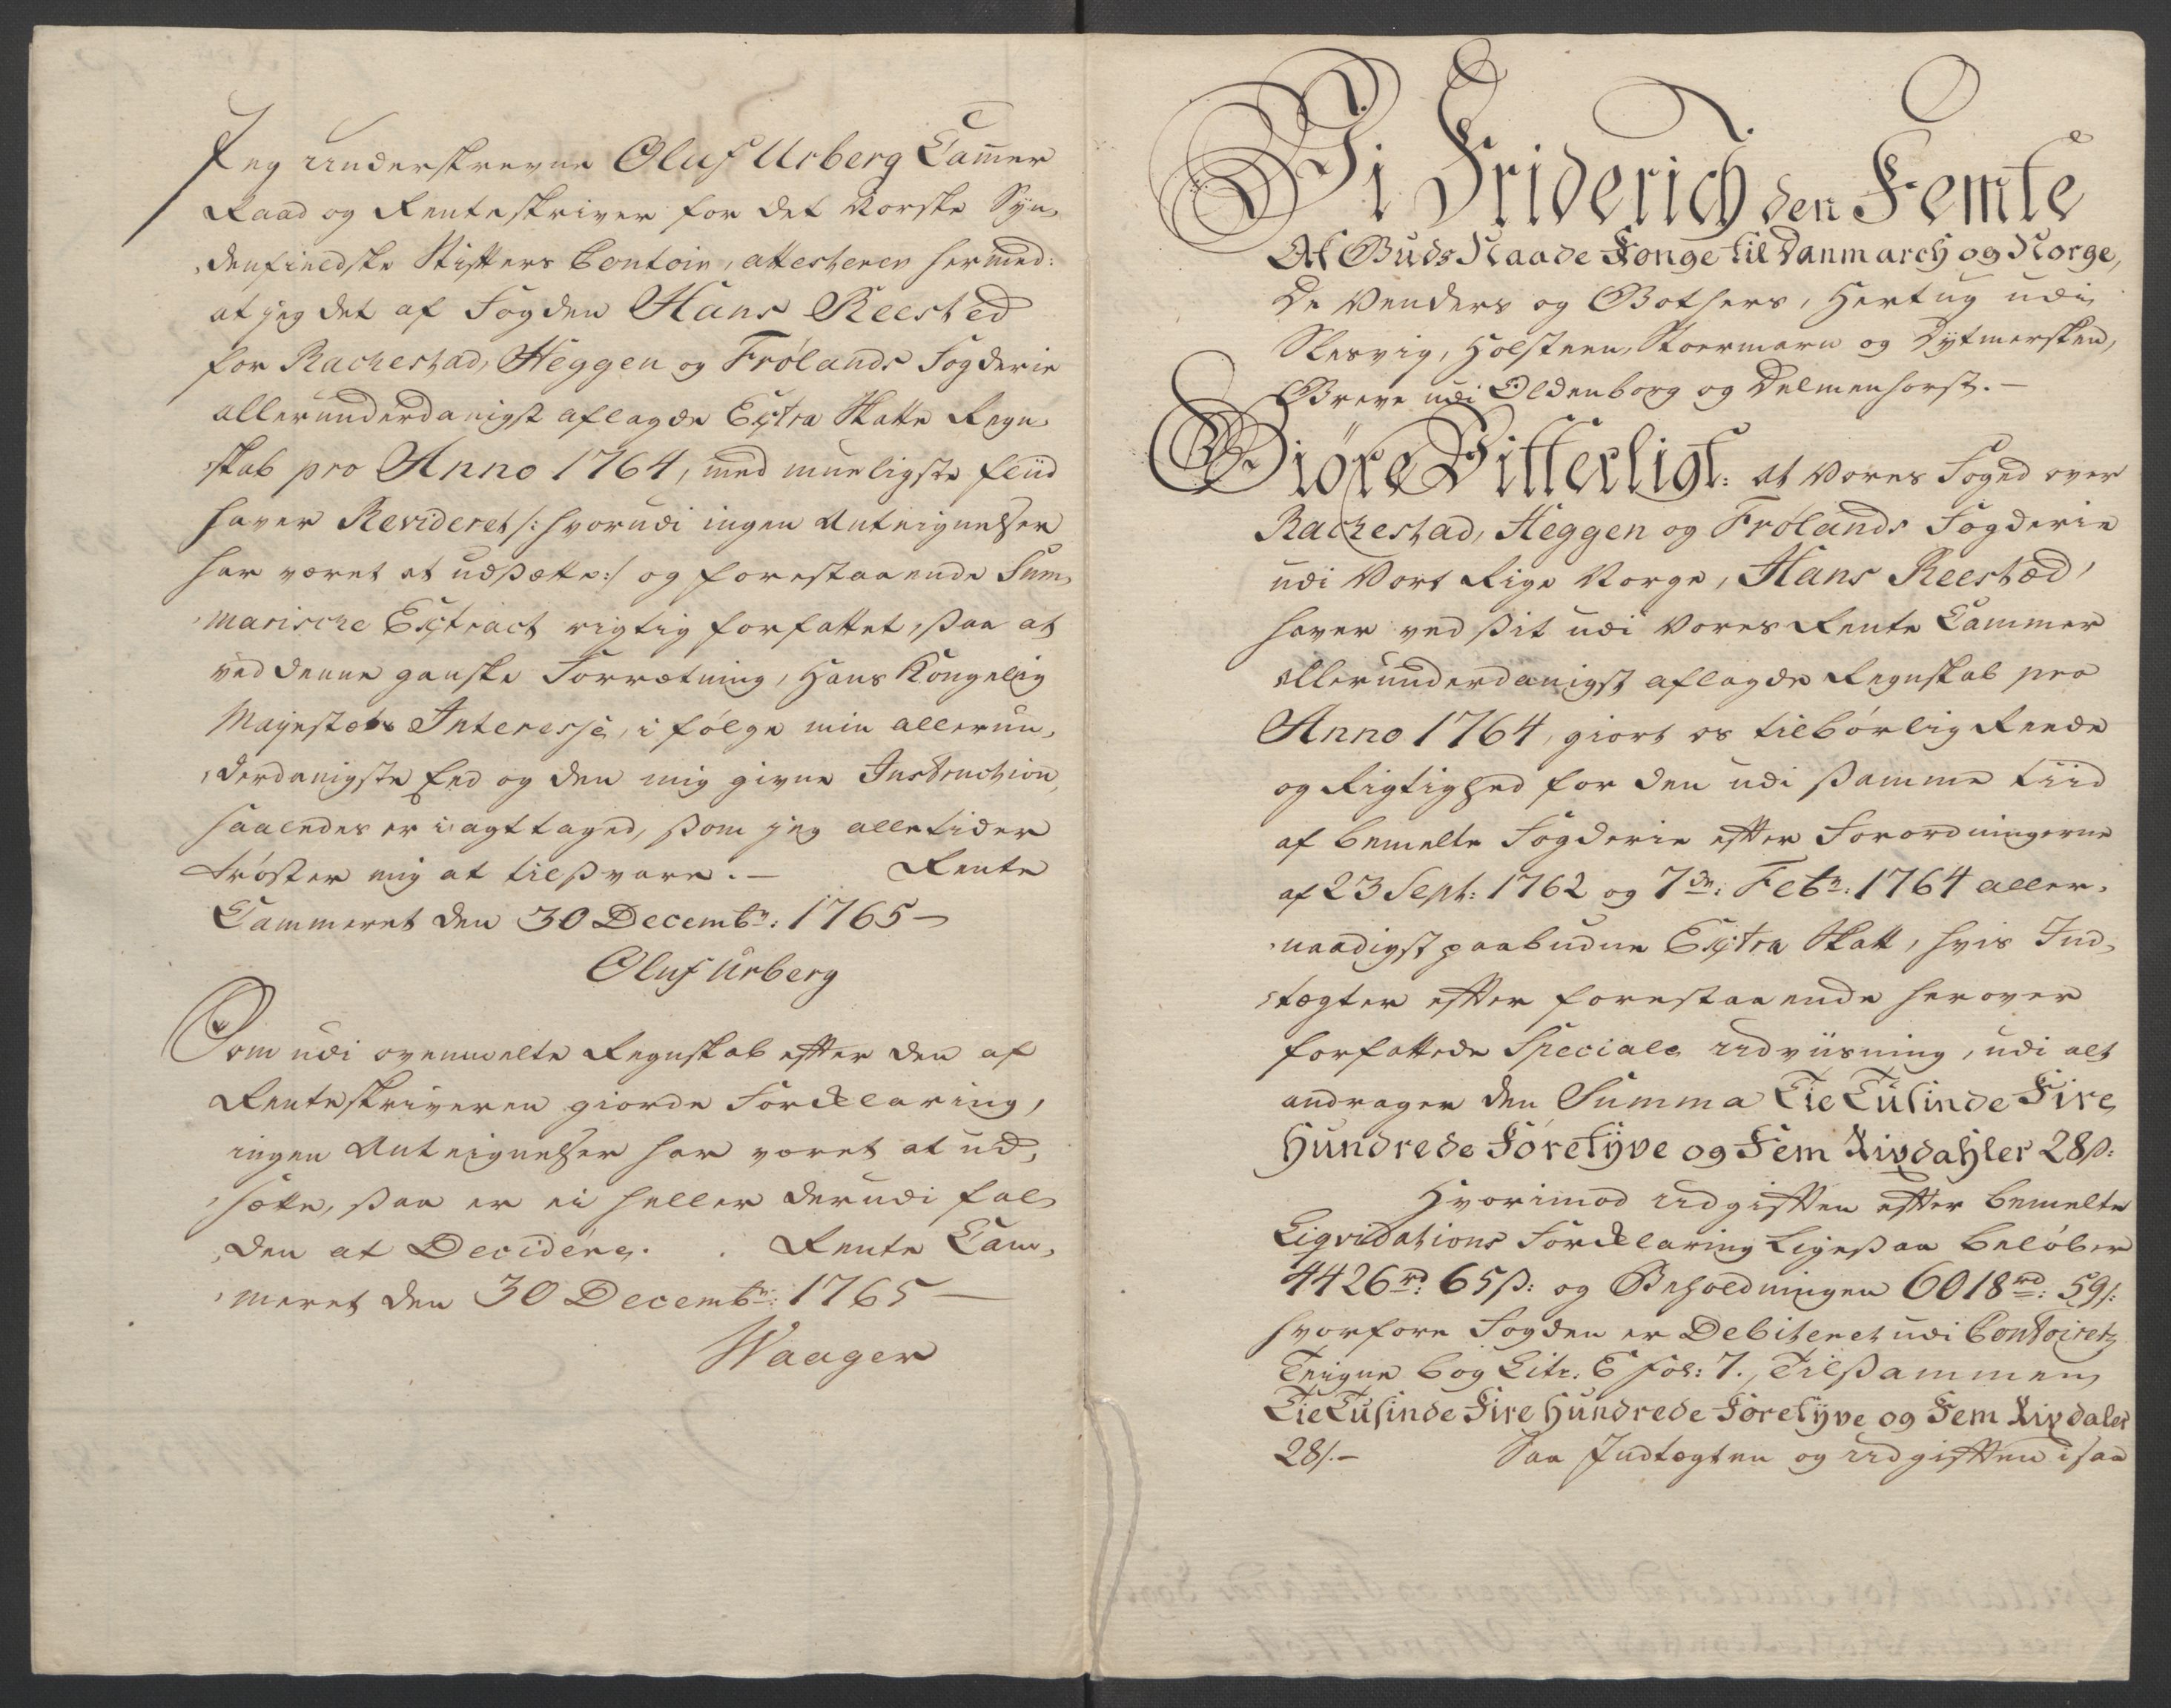 Jeg Underskrevne Oluf Urberg Cam̄er
Raad og Renteskriver for det Norske Syn,
,denfieldske Stifters Contoir, attesterer hermed:
at jeg det af Fogden Hans Reested
for Rachestad, Heggen og Frølands Fogderie
allerunderdanigst aflagde Extra Skatte Regn,
,skab pro Anno 1764, med mueligste fliid
haver Revideret /: hvorudi ingen Anteignelser
har været at udsætte :/ og forestaaende Sum,
,marische Extract rigtig forfattet, saa at
ved denne ganske Forretning, Hans Kongelig
Mayestæts Interesse, i følge min allerun,
,derdanigste Eed og den mig givne Instruction,
saaledes er i agt taged, som jeg alletider
trøster mig at tilsvare. — Rente
Cammeret den 30 Decembr: 1765 —
Oluf Urberg
Som udi ovenmelte Regnskab efter den af
Renteskriveren giorde Forklaring,
ingen Anteignelser har været at ud,
,sætte, saa er ei heller derudi fal,
,den at Decidére. Rente Cam,
,meret den 30 Decembr: 1765 —
Waager
Vi Friderich den Femte
Af Guds Naade Konge til Danmarch og Norge,
De Venders og Gothers, Hertug udi
Slesvig, Holsteen, Stoermarn og Dytmersken,
Greve udi Oldenborg og Delmenhorst. —
Giöre Vitterligt: At Vores Foged over
Rachestad, Heggen og Frølands Fogderie
udi Vort Rige Norge, Hans Reestæd,
haver ved sit udi Vores Rente Cammer
allerunderdanigst aflagde Regnskab pro
Anno 1764, giort os tilbørlig Reede
og Rigtighed for den udi samme tiid
af bemelte Fogderie efter Forordningerne
af 23 Sept: 1762 og 7de: Febr: 1764 aller,
,naadigst paabudne Extra Skatt, hvis Ind,
,tægter efter forestaaende herover
forfattede Speciale Udviisning, udi alt
andrager den Summa Tie Tusinde Fire
Hundrede Företyve og Fem Rixdahler 28 s:
Hvorimod Udgiften efter bemelte
Liqvidations Forklaring ligesaa beløber
4426 rd: 65 s: og Beholdningen 6018 rd: 59 s:
hvorfore Fogden er Debiteret udi Contoirets
Teigne bog Litr. E fol: 7., Tilsammen
Tie Tusinde Fire Hundrede Företyve og Fem Rixdaler
28 s. — Saa Indtægten og Udgiften i saa